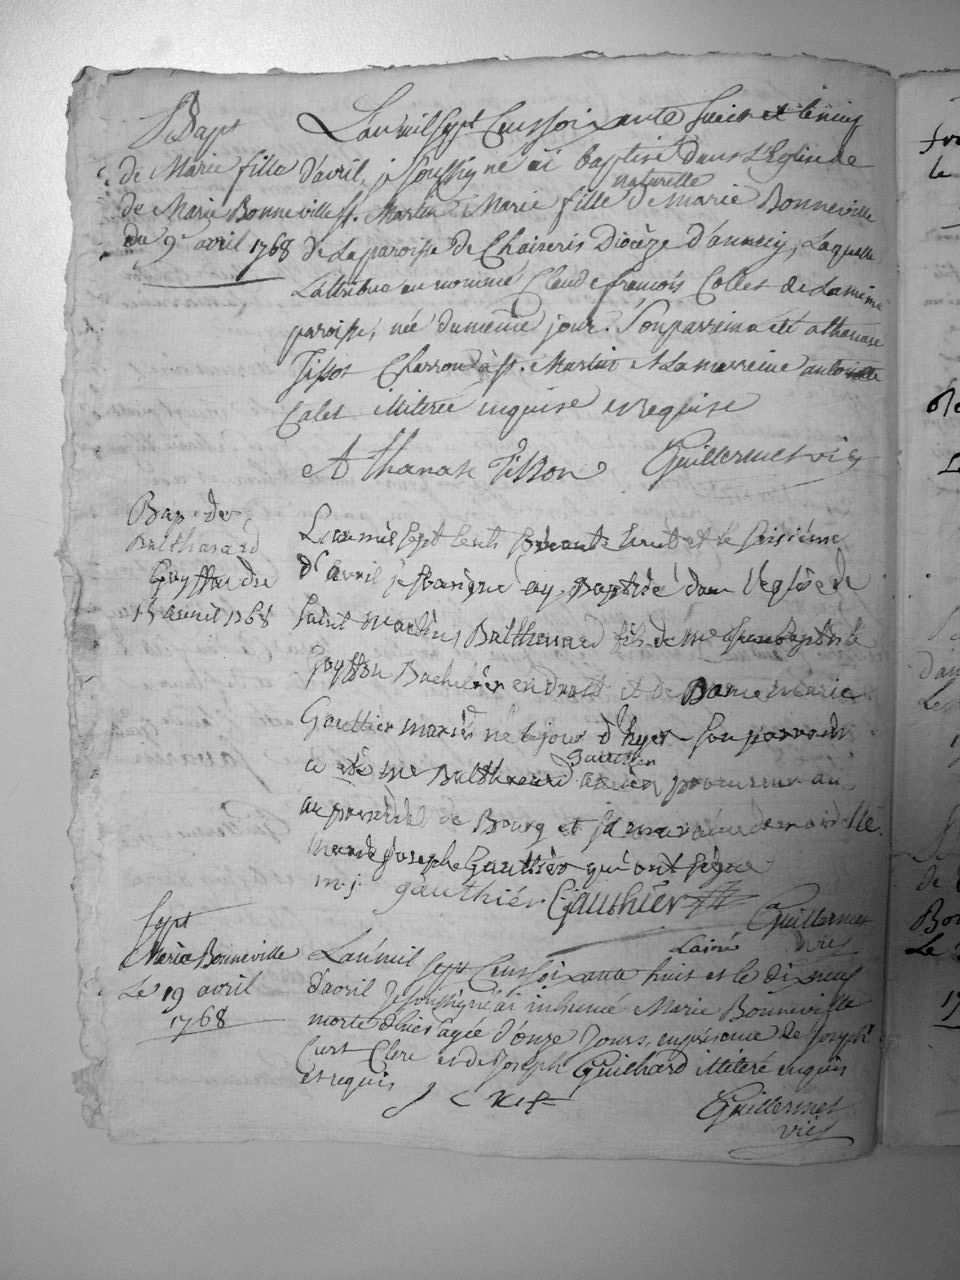 Bapt
de Marie fille
de Marie Bonneville
du 9e avril 1768
L'an mil sept Cens soixante huit et le neuf
d'avril, je soussigné ai baptisé dans L'Eglise de
St. Martin Marie fille naturelle de Marie Bonneville
de La paroisse de Chaiseris Diocèze d'annecy, Laquelle
L'attribue au nommé Claude francois Collet de La même
paroisse, née du même jour. Son parrein a été athanase
Tissot Charron à St. Martin et La marreine antoinette
Calet illiterée enquise et requise
Athanase Tisson Guillermet vic
Bap. de
Balthasard
Goyffon du
15 avril 1768
L'an mil sept cents soixante huit et le
d'avril je soussigné ay Baptisé dans l'eglise de
saint martin, Balthesard fils de me jean baptiste
Goyffon Bachelier en droit et de Dame marie
Gauttier mariés né le jour d'hyer son parrain
a été me Balthesard Gauttier procureur au
au presidial de Bourg et sa maraine demoiselle
marie joseph Gauthier qui ont signé
m. j. gauthier Gauthier Guillermet
Lainé vic
Sept
Maria Bonneville
Le 19 avril
1768
L'an mil sept Cens soixante huit et le dix neuf
d'avril Je soussigné ai inhumé Marie Bonneville
morte d'hier agée d'onze Jours, en présence de Joseph
Curt Clerc et de Joseph Guichard illiteré enquis
et requis J Curt Guillermet
vic